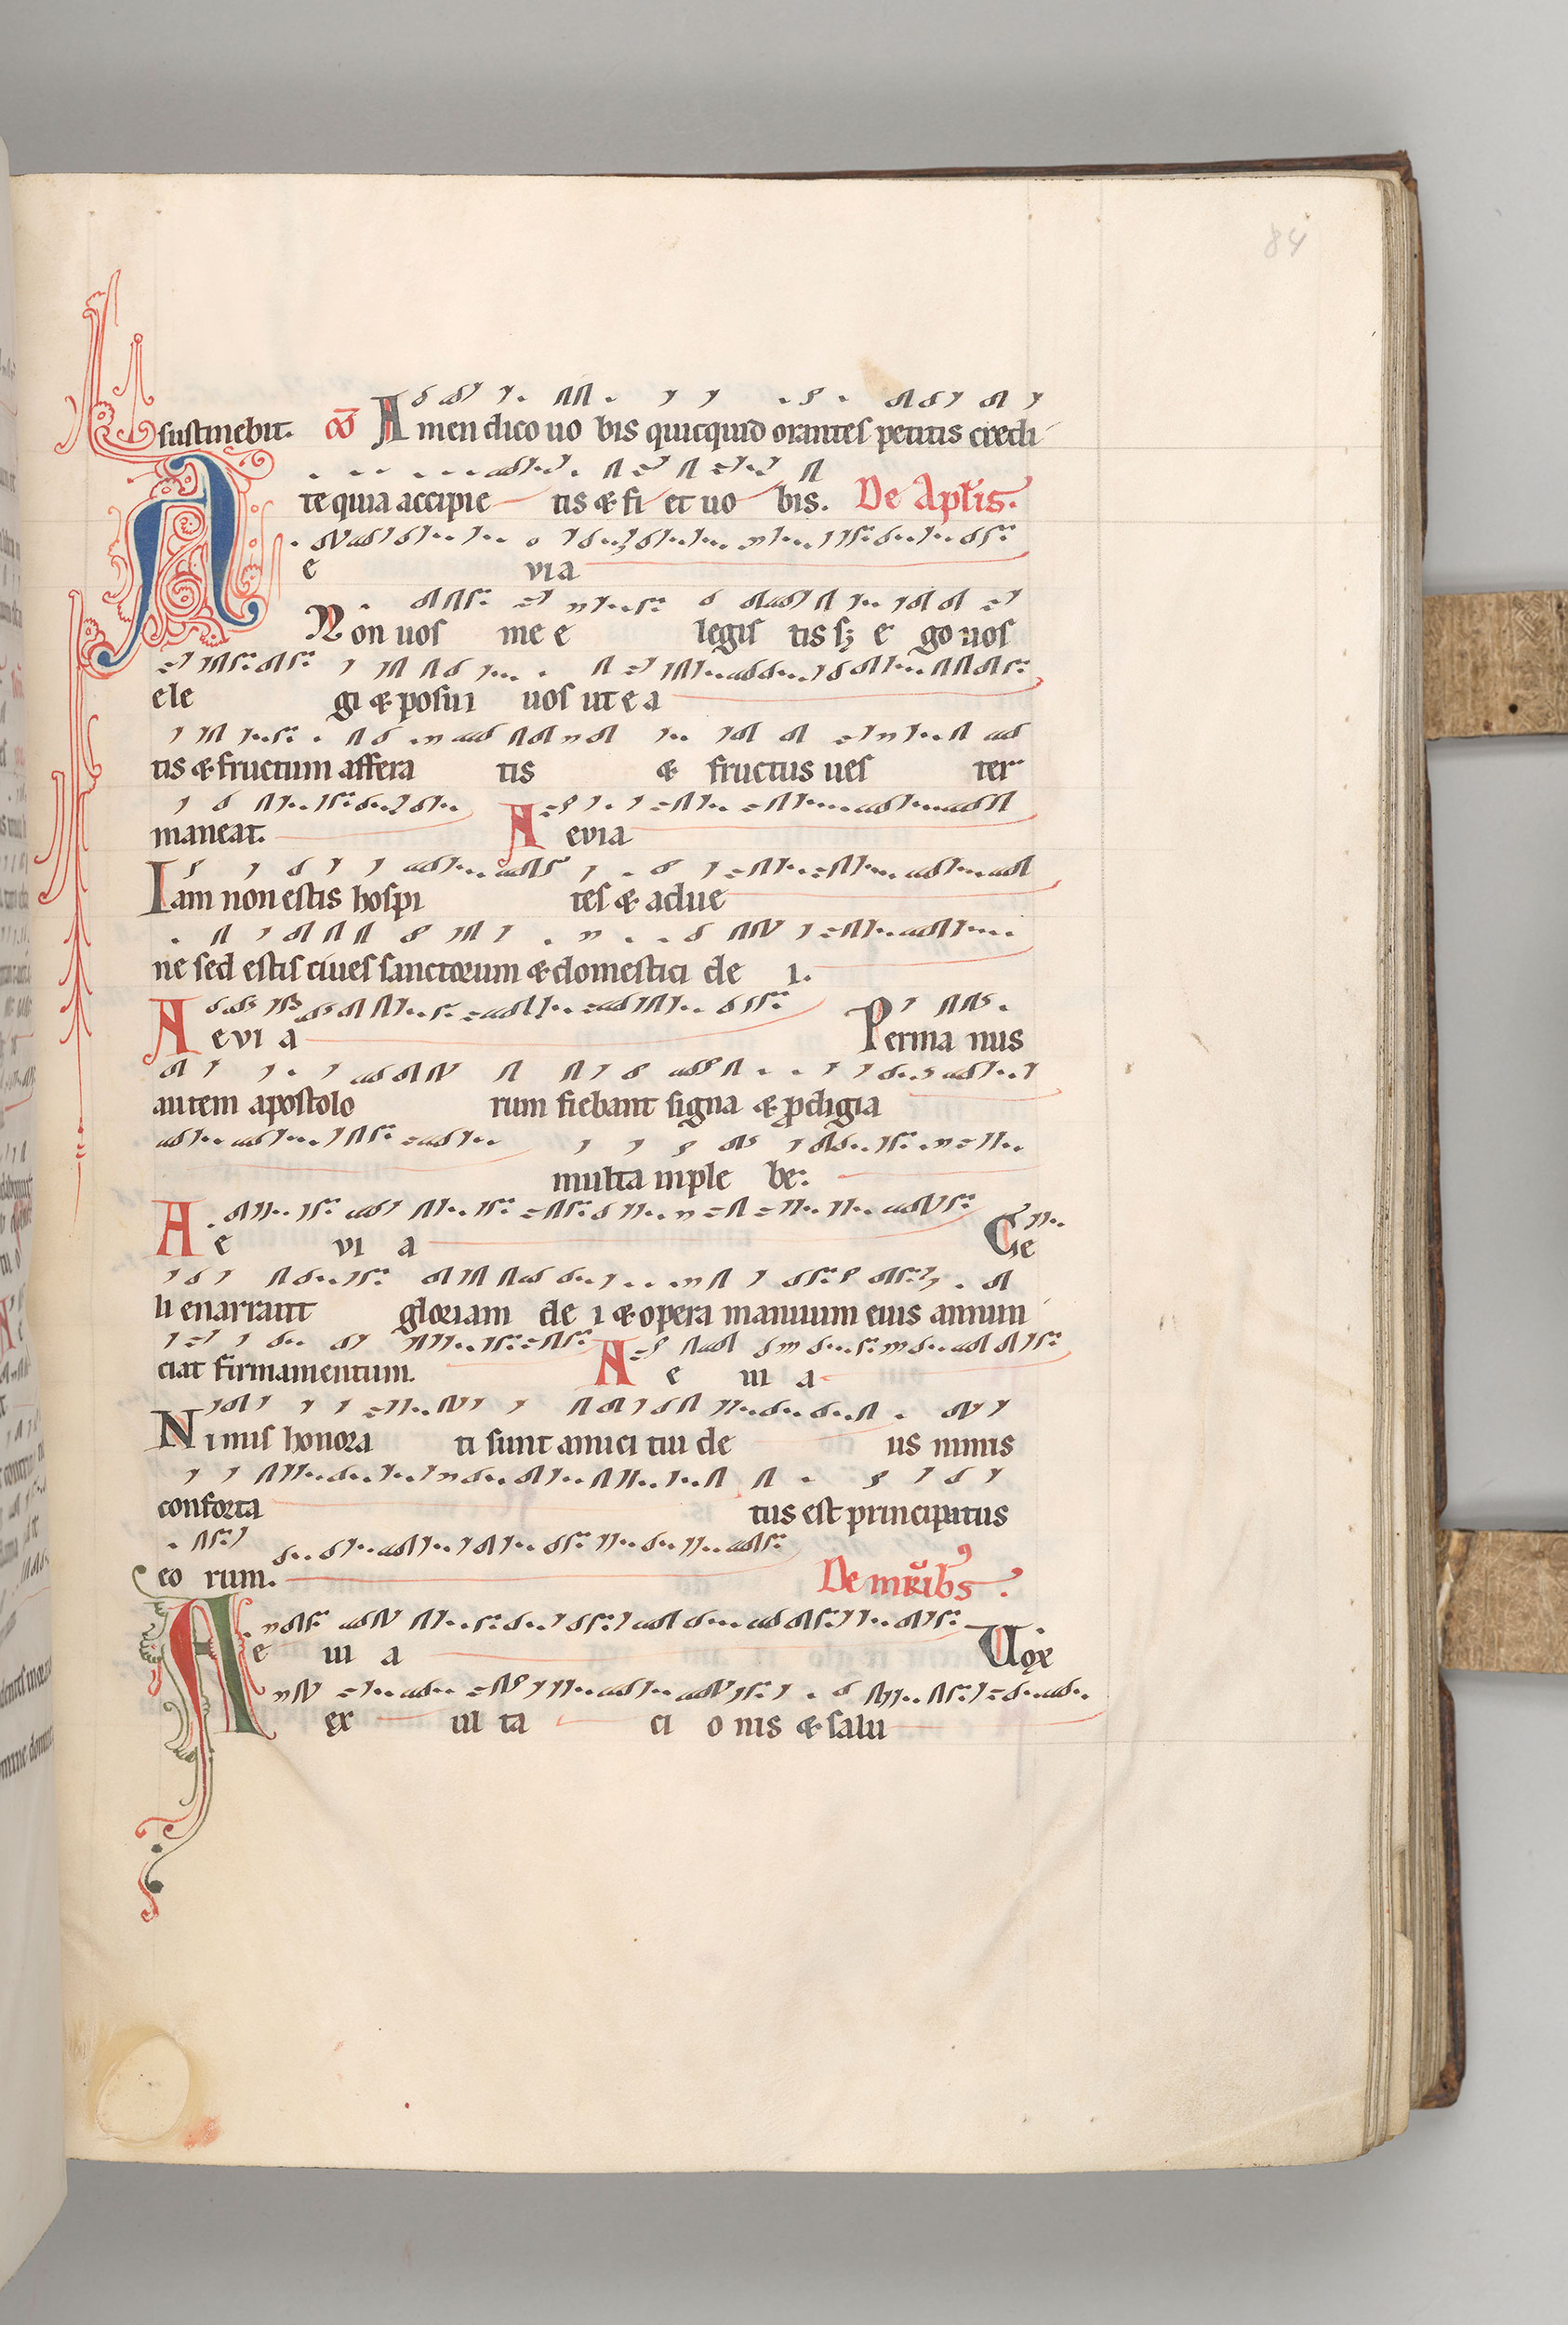 84
sustinebit. Co Amen dico uo bis quicquid orantes petitis credi
te quia accipie tis & fi et uo bis. De Aplis.
A e via
Non uos me e legis tis sꝫ e go uos
ele gi & posui uos ut e a
tis & fructum affera tis & fructus ues ter
maneat. A evia
Iam non estis hospi tes & adue
ne sed estis ciues sanctorum & domestici de i.
A e vi a Per ma nus
autem apostolo rum fiebant signa & ꝓdigia
multa inple be:
A e vi a Ce
li enarrant gloriam de i & opera manuum eius annun
ciat firmamentum. A e ui a
Nimis honora ti sunt amici tui de us nimis
conforta tus est principatus
eo rum. De mr̄ibꝰ.
A e ui a Uox
ex ul ta ci o nis & salu